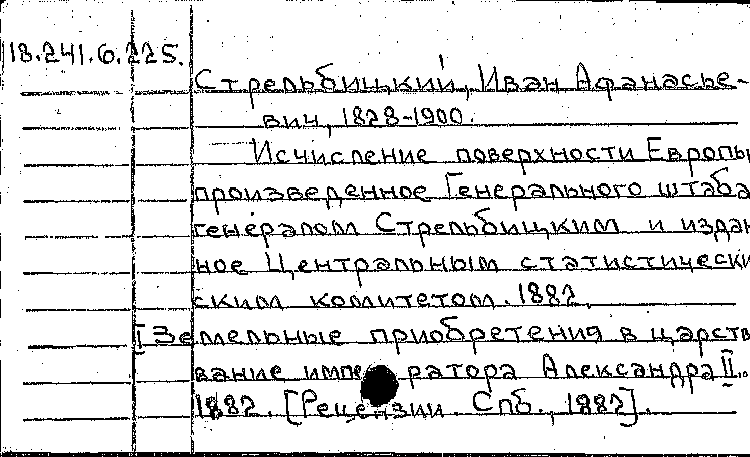 18.241.6.225.
Стрельбицкий, Иван Афанасье-
вич, 1828-1900.
Исчисление поверхности Европы
произведенное Генерального штаба
генералом Стрельбицким и издан
ное Центральным статистически
ским комитетом. 1882.
I Земельные приобретения в царств
вание императора Александра II..
1882. [Рецензии. Спб., 1882].